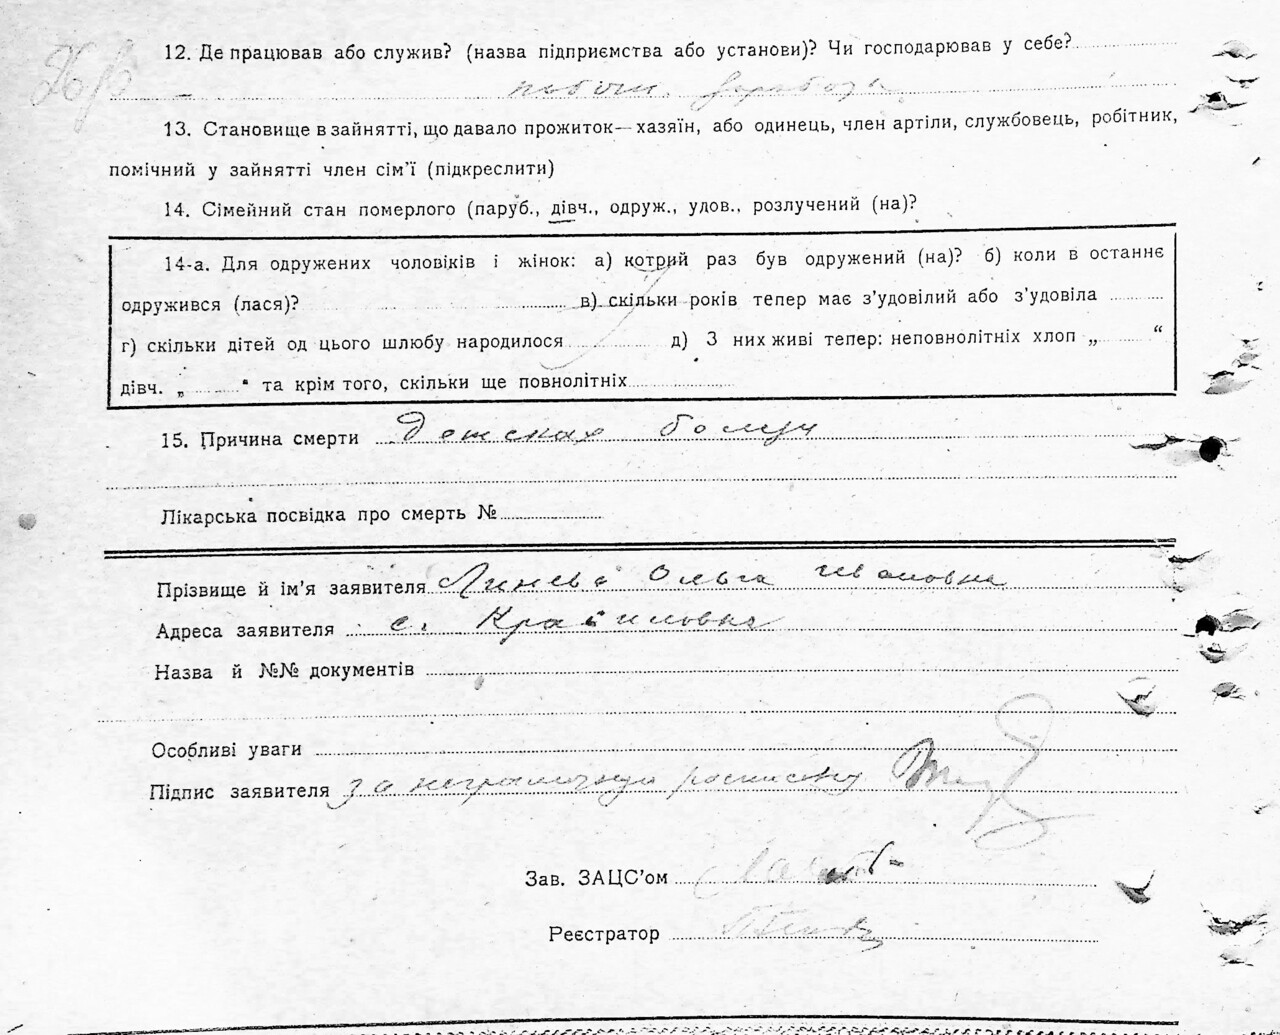 12. Де працював або служив? (назва підприємства або установи)? Чи господарював у себе?
13. Становище в зайнятті, що давало прожиток—хазяїн, або одинець, член артіли, службовець, робітник,
помічний у зайнятті член сім'ї (підкреслити)
14. Сімейний стан померлого (паруб., дівч., одруж., удов., розлучений (на)?
14-а. Для одружених чоловіків і жінок: а) котрий раз був одружений (на)? б) коли в останнє
одружився (лася)? в) скільки років тепер має з'удовілий або з'удовіла
г) скільки дітей од цього шлюбу народилося д) З них живі тепер: неповнолітніх хлоп „ “
дівч. „ " та крім того, скільки ще повнолітніх
15. Причина смерти детская
Лікарська посвідка про смерть №
Прізвище й ім'я заявителя Ольга Ивановна
Адреса заявителя с.
Назва й №№ документів
Особливі уваги
Підпис заявителя за неграмотную
Зав. ЗАЦС'ом
Реєстратор